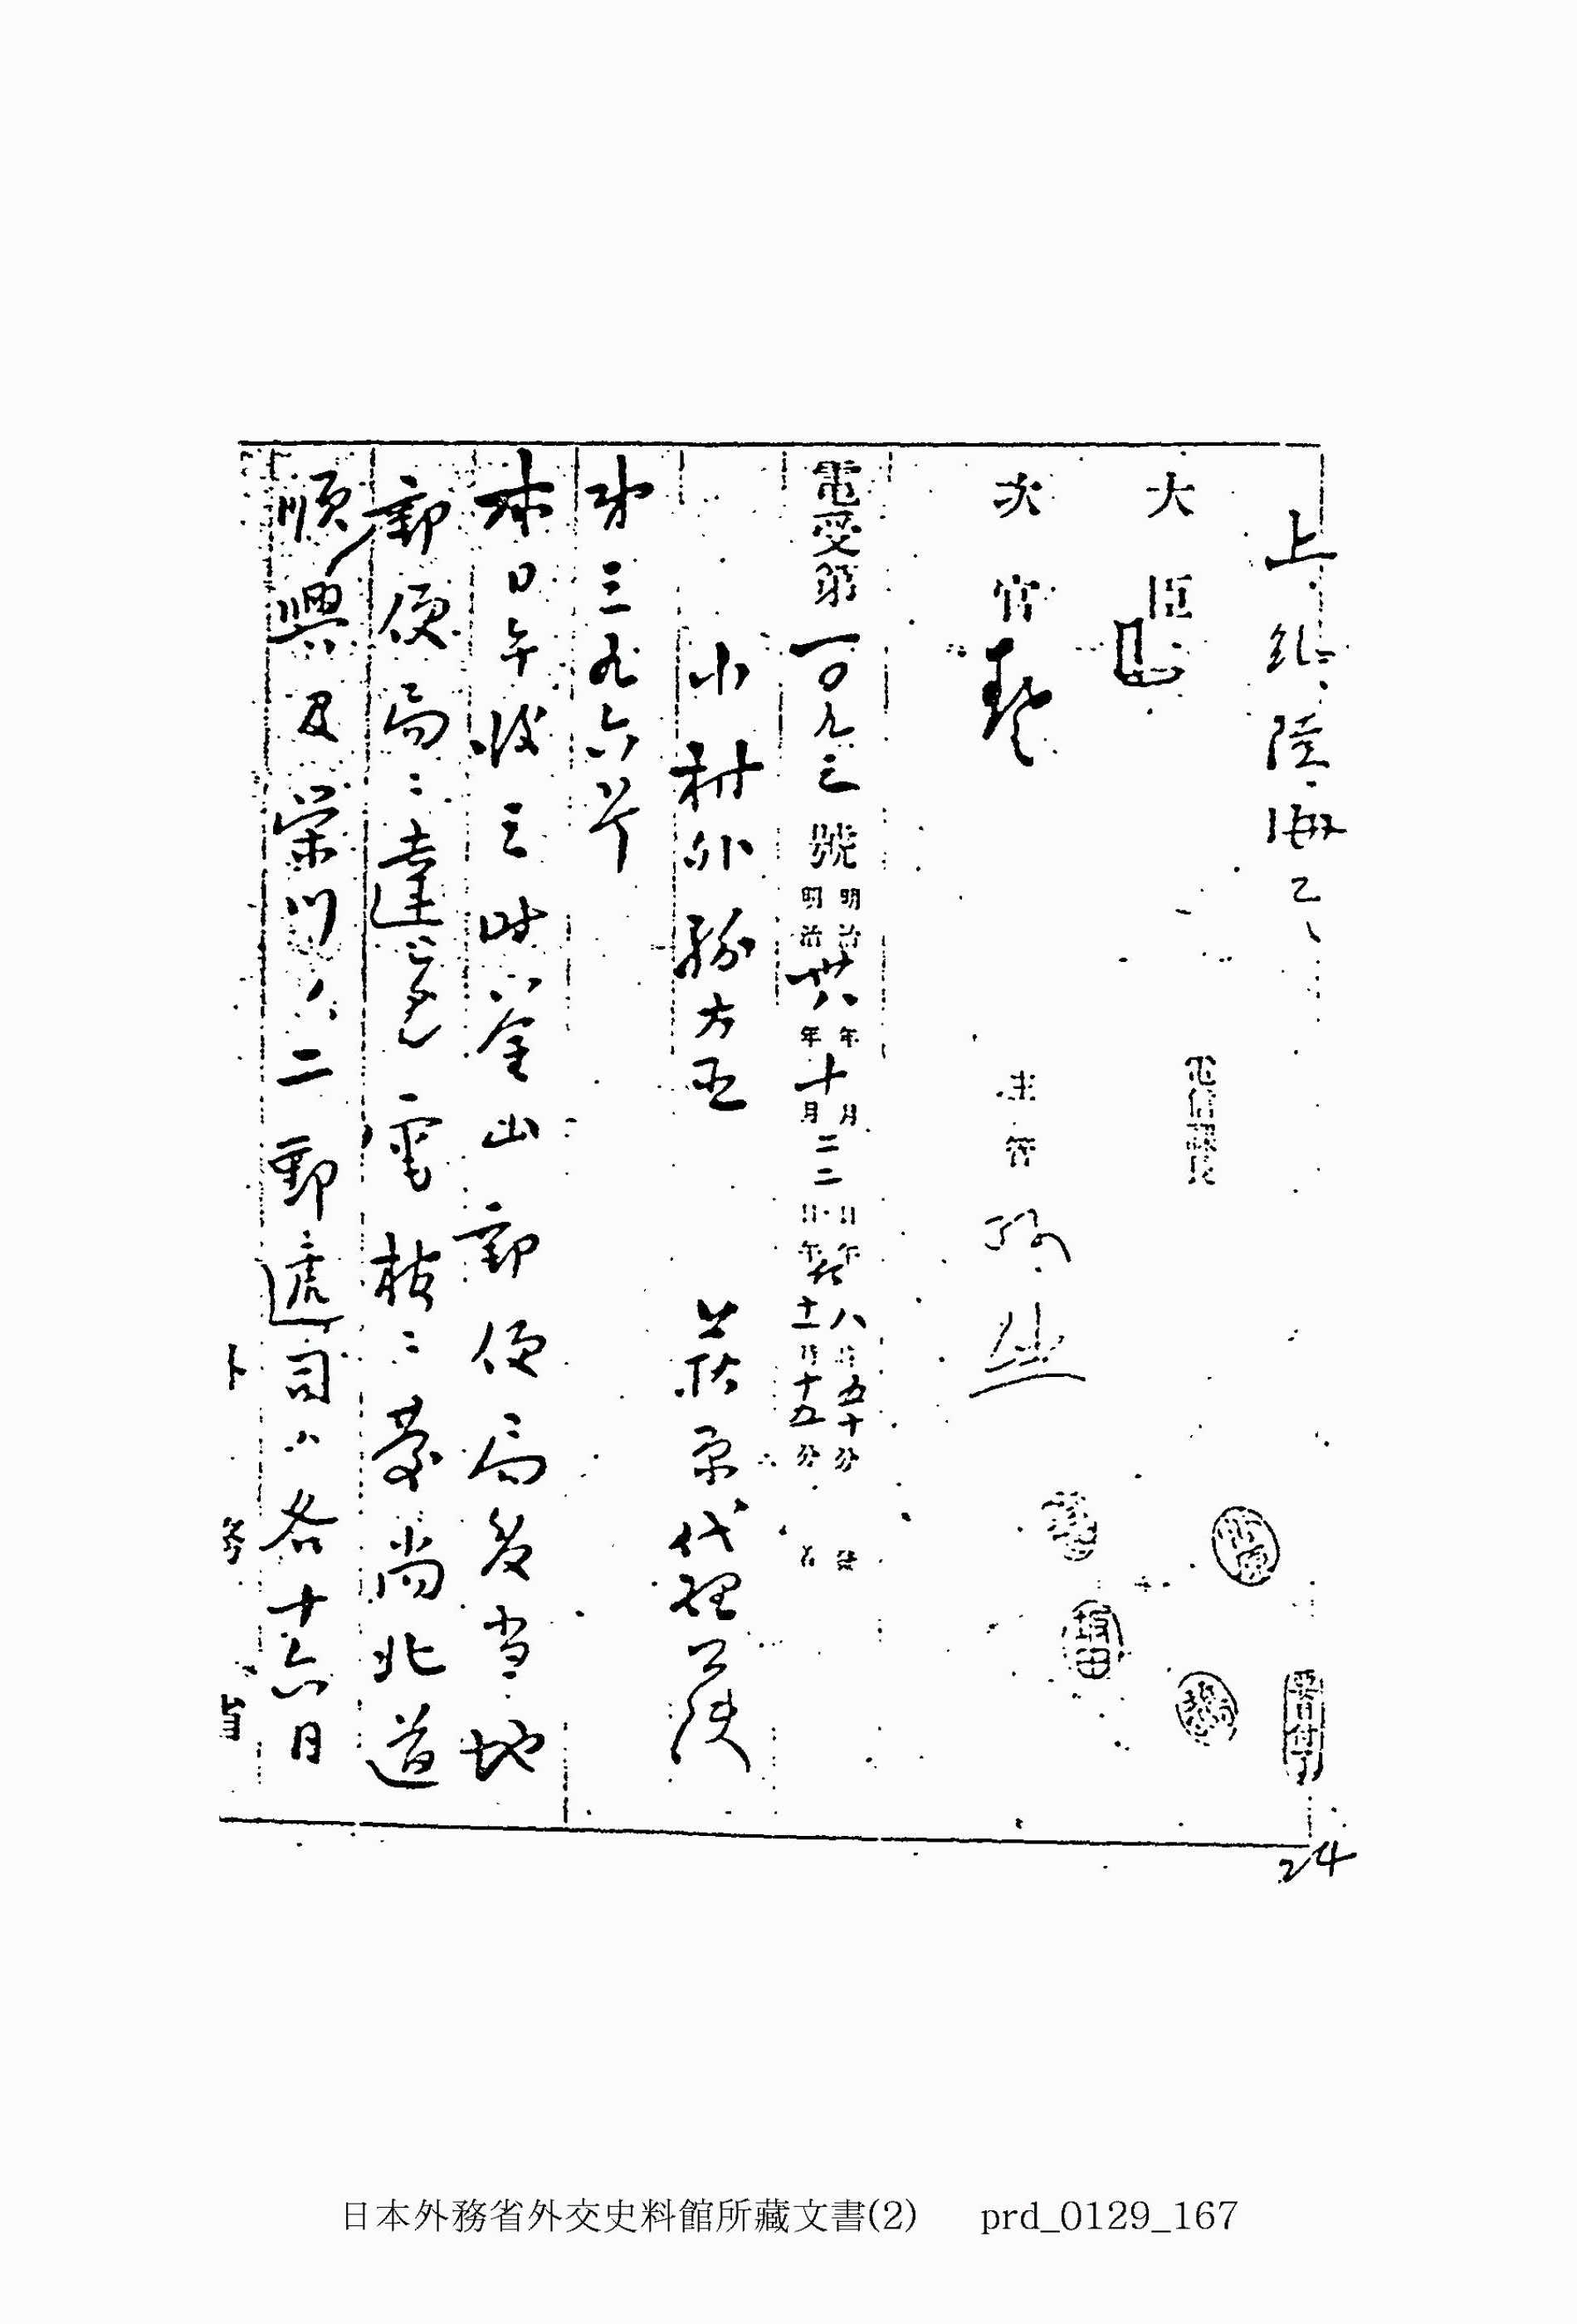 上
陸海乙
大臣
電信課長
次官
主管
電受第一〇九三號
明治卅八年十月二二日午后八時五十分發
明治卅八年十月二二日午后十一時十五分着
小村外務大臣
萩原代理公使
第三九六号
本日午後三時釜山郵便局ヨリ当地
郵便局ニ達シタル電報ニ慶尚北道
順興及栄川ノ二郵遞司ハ各十六日
坂田
24
日本外務省外交史料館所藏文書(2) prd_0129_167